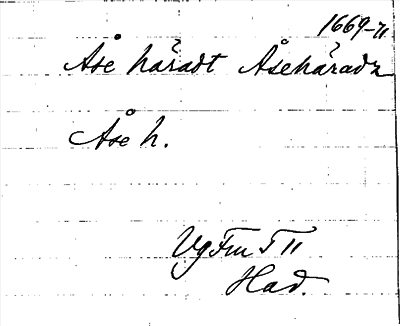 1669-71
Åse häradt Åsehäradz
Åse h.
Vg Fm I II
Had.